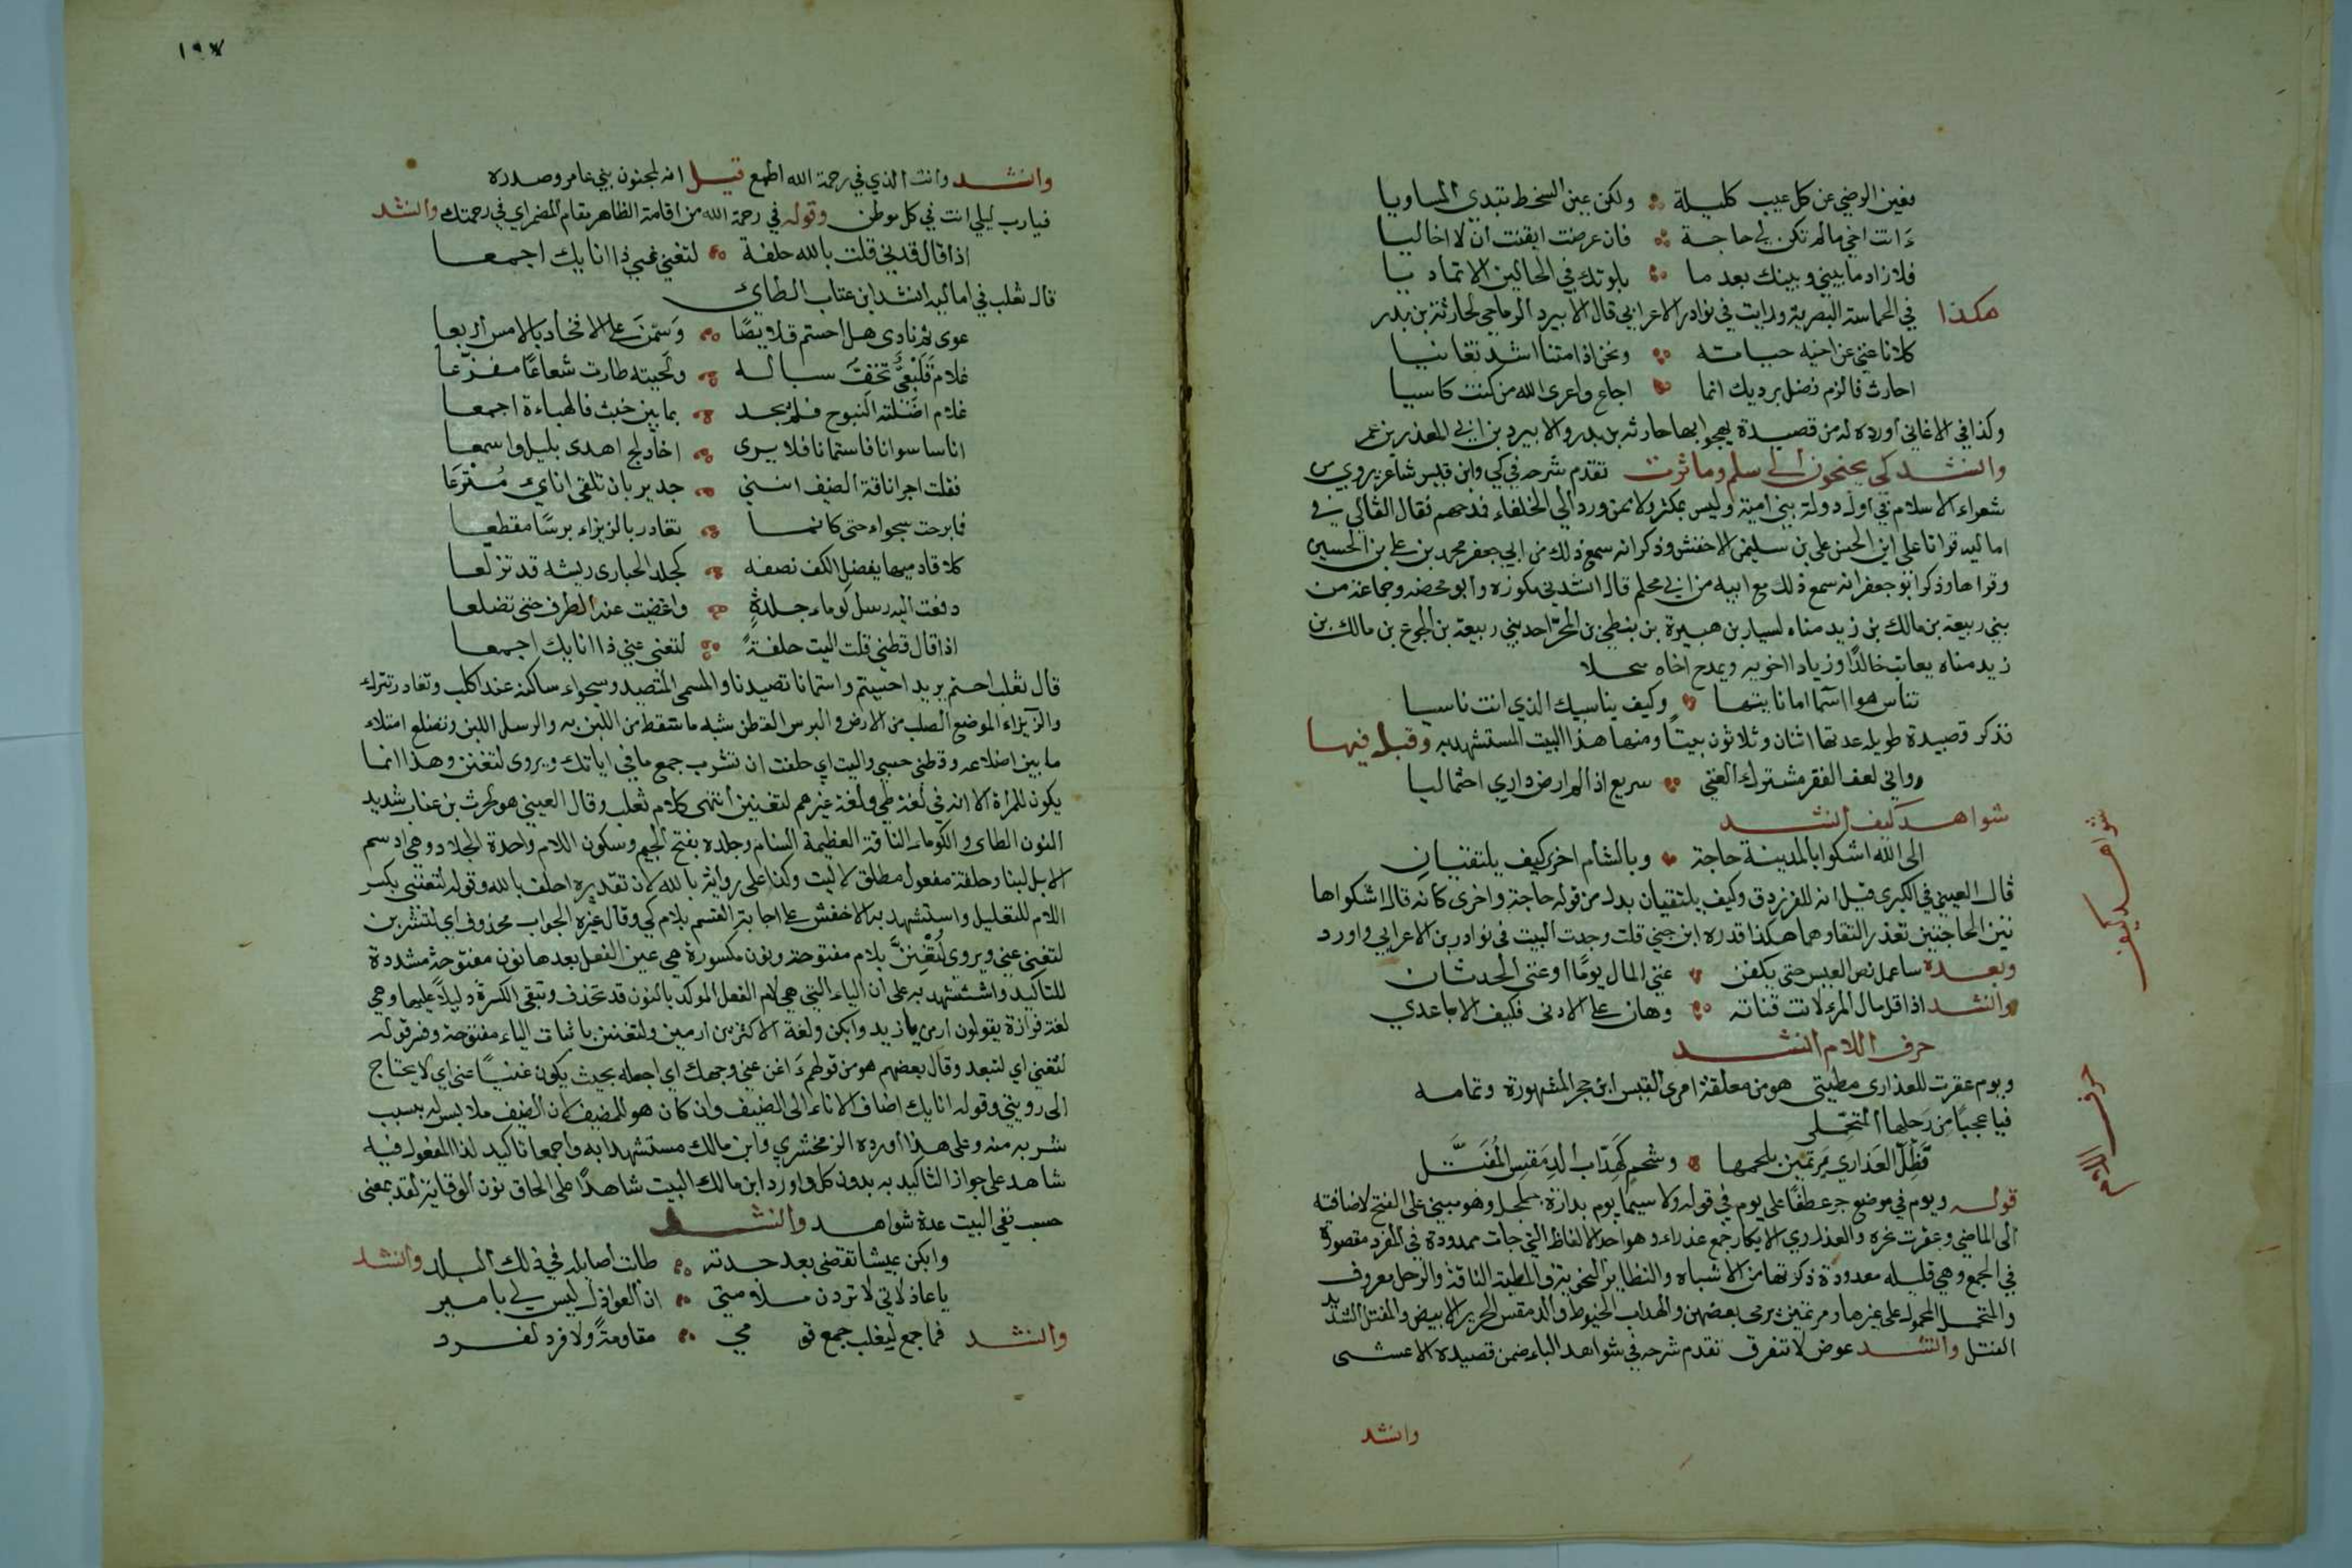 فعين الرضي عن كل عيب كليلة ولكن عين السخط تبدي المساويا
ءانت اخي مالم تكن لي حاجة فان عرضت ايقنت ان لا اخاليا
فلا زاد ما بيني وبينك بعد ما بلوتك في الحالين الا تماديا
هكذا في الحماسة البصرية ورايت في نوادر الاعرابي قال الابيرد الرياحي لحارثة بن بدر
كلانا غني عن اخيه حياته ونحن اذا متنا اشد تغانيا
احارث فالزم فضل برديك انما اجاع واعرى الله من كنت كاسيا
وكذا في الاغاني أورده له من قصيدة يهجوا بها حارثه بن بدر والابيرد بن المعذر بن عمر
وانشد كي يجنحون الى سلم وما ثرت تقدم شرحه في كي وابن قيس شاعر يروي من
شعراء الاسلام في اول دولة بني امية وليس بمكثر ولا ممن ورد الى الخلفاء فمدحهم فقال القالي في
اماليه قرانا على ابي الحسن علي بن سليمن الاخفش وذكر انه سمع ذلك من ابي جعفر محمد بن علي بن الحسين
وقراها وذكر ابو جعفر انه سمع ذلك مع ابيه من ابي محلم قال انشدني مكوزه وابو محضه وجماعة من
بني ربيعة بن مالك بن زيد مناه لسيار بن هبيرة بن احد بني ربيعة بن الجوع بن مالك بن
زيد مناه يعاتب خالدًا وزيادا اخويه ويمدح اخاه
تناس هوا اسما اما نايتها وكيف يناسيك الذي انت ناسيا
فذكر قصيدة طويله عدتها اثنان وثلاثون بيتًا ومنها هذا البيت المستشهد به وقبله فيها
وواني لعف الفقر مشترك الغني سريع اذا لم ارض داري احتماليا
شواهد كيف انشد
شواهد كيف
الى الله اشكوا بالمدينة حاجة وبالشام اخرى كيف يلتقيان
قال العيني في الكبرى قيل انه للفرزدق وكيف يلتقيان بدل من قوله حاجة واخرى كانه قال اشكوا ها
تين الحاجتين تعذر التقاوهما هكذا قدره ابن جني قلت وجدت البيت في نوادر بن الاعرابي واورد
وبعده ساعمل نص العيس حتى يكفن غني المال يومًا او غني الحدثان
وانشد اذا قل مال المرء لانت قناته وهان على الادنى فكيف الاباعدي
حرف اللام انشد
حرف اللام
ويوم عقرت للعذارى مطيتي هو من معلقة امرئ القيس ابن حجر المشهورة وتمامه
فيا عجبًا من رحلها المتحملى
فَظَلّ العَذاري يرتمين بلحمها وشحمٍ كهدّاب الدِمَقسِ المُفَتَّل
قوله ويوم في موضع جر عطفًا على يوم في قوله ولا سيما يوم بدارة جلجل وهو مبني على الفتح لاضافته
الى الماضي وعقرت نحره والعذارى الابكار جمع عذراء وهو احد الالفاظ التي جات ممدودة في المفرد مقصورة
في الجمع وهي قليله معدودة ذكرتها من الاشباه والنظاير النحوية والمطية الناقة والرحل معروف
والمتحمل المحمول على غيرها ويرتمين يرمي بعضهن والهداب الخيوط والدمقس الحرير الابيض والمفتل الشديد
الفتل وانشد عوض لا تتفرق تقدم شرحه في شواهد الباء ضمن قصيدة الاعشى
وانشد
١٩٧
وانشد وانت الذي في رحمة الله اطمع قيل انه لمجنون بني عامر وصدره
فيا رب ليلى انت في كل موطن وقوله في رحمة الله من اقامة الظاهر مقام المضمر اي في رحمتك وانشد
اذا قال قدني قلت بالله حلفة لتغني عني ذا انايك اجمعا
قال ثعلب في اماليه انشد ابن عتاب الطاي
عوى ثم نادى هل احستم قلايصًا وَسَمْنَ على الافخاذ بالامس اربعا
غلامٌ سباله ولحيته طارت شعاعًا مفزّعا
غلام اضلته النبوح فلم يجد بما بين خبت فالهباءة اجمعا
اناسا سوانا فاستمانا فلا يرى اخا دلج اهدى بليل واسمعا
فقلت اجرا ناقة الضيف انني جدير بان تلقى اناي مُتْرَعَا
فما برحت سجواء حتى كانما تغادر بالزيزاء برسًا مقطعا
كلا قادميها يفضل الكف نصفه كجلد الحبارى ريشه قد تزلعا
دفعت اليه رسل كوماء جلدةٍ واغضيت عنه الطرف حتى تضلعا
اذا قال قطني قلت اليت حلفةً لتغني عني ذا انايك اجمعا
قال ثعلب احستم يريد احسيتم واستمانا تصيدنا والمسمى المتصيد وسجواء ساكنه عند الحلب وتغادر تترك
والزيزاء الموضع الصلب من الارض والبرس القطن شبه ما سقط من اللبن به والرسل اللبن وتضلع امتلاء
ما بين اضلاعه وقطني حسبي واليت اي حلفت ان تشرب جمع ما في اناتك ويروى لتغنن وهذا انما
يكون للمراة الا انه في لغة طي ولغة غيرهم لتغنين انتهى كلام ثعلب وقال العيني هو لحرث بن عناب بتشديد
النون الطاي والكوماء الناقة العظيمة السنام وجلده بفتح الجيم وسكون اللام واحدة الجلاد وهي ادسم
الابل لبنا وحلفة مفعول مطلق لاليت وكذا على رواية بالله لان تقديره احلف بالله وقوله لتغني بكسر
اللام للتعليل واستشهد به الاخفش على اجابة القسم بلام كي وقال غيره الجواب محذوف اي لتشربن
لتغني عني ويروى لَتُغْنِنَّ بلام مفتوحة ونون مكسورة هي عين الفعل بعدها نون مفتوحة مشددة
للتاكيد واستشهد به على ان الياء التي هي لام الفعل الموكد بالنون قد تحذف وتبقى الكسرة دليلاً عليها وهي
لغة فزارة يقولون ارمن يا زيد وابكن ولغة الاكثرين ارمين ولتغنين باثبات الياء مفتوحة وفسر قوله
لتغني اي لتبعد وقال بعضهم هو من قولهم ءاغن عني وجهك اي اجعله بحيث يكون غنيًا عني اي لا يحتاج
الى رويتي وقوله انايك اضاف الاناء الى الضيف وان كان هو للمضيف لان الضيف ملابس له بسبب
شربه منه وعلى هذا أورده الزمخشري وابن مالك مستشهدا به واجمعا تاكيد لذا المفعول فيه
شاهد على جواز التاكيد به بدون كل واورد ابن مالك البيت شاهدًا على الحاق نون الوقاية لقد بمعنى
حسب ففي البيت عدة شواهد وانشد
وابكن عيشا تقضى بعد جدته طابت اصايله في ذلك البلد وانشد
يا عاذلاتي لا تردن ملامتي ان العواذل ليس لي بامير
وانشد فما جمع ليغلب جمع قومي مقاومةً ولا فرد لفرد